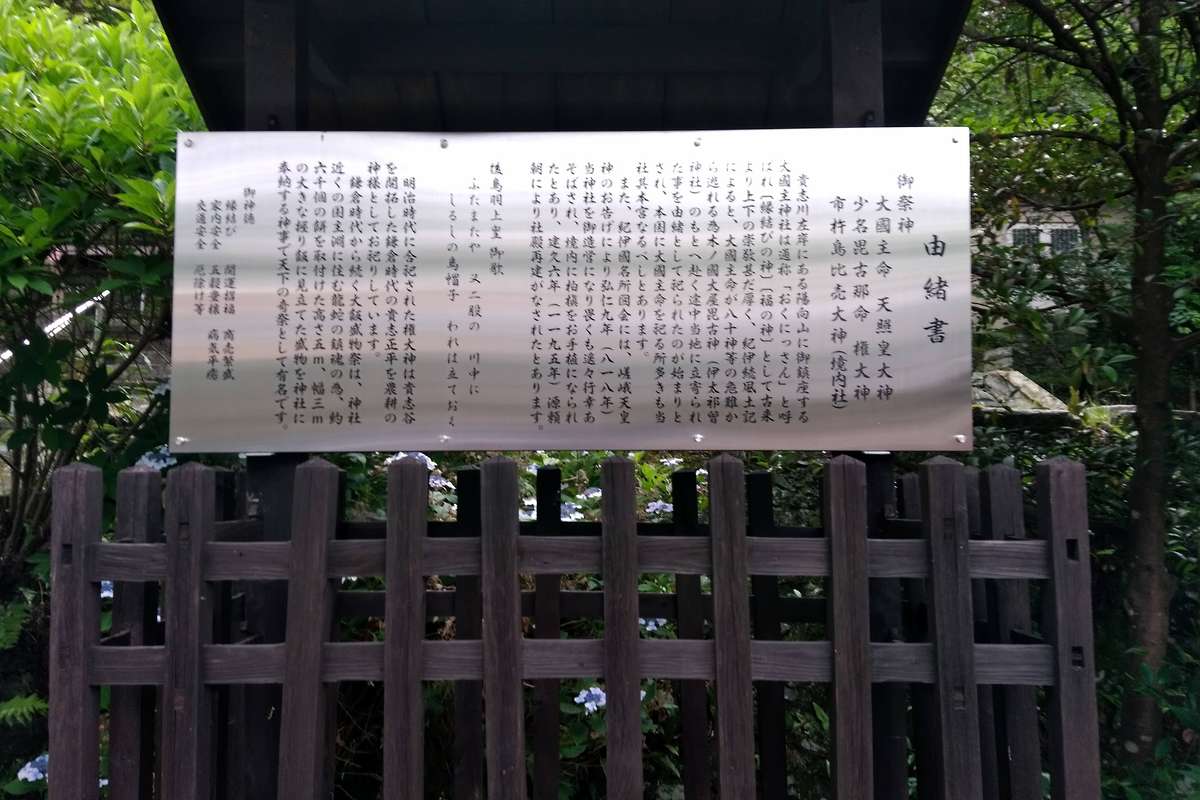 由緒書
御祭神
大國主命 天照皇大神
少名毘古那命 権大神
市杵島比売大神(境内社)
貴志川左岸にある陽向山に御鎮座する
大國主神社は通称「おくにっさん」と呼
ばれ〔縁結びの神〕〔福の神〕として古来
より上下の崇敬甚だ厚く、紀伊続風土記
によると、大國主命が八十神等の危難か
ら逃れる為木ノ國大屋毘古神(伊太祁曽
神社)のもとへ赴く途中当地に立寄られ
た事を由緒として祀られたのが始まりと
され、本国に大國主命を祀る所多きも当
社其本宮なるべしとあります。
また、紀伊國名所図会には、嵯峨天皇
神のお告げにより弘仁九年(八一八年)
当神社を御造営になり畏くも遥々行幸あ
そばされ、境内に柏槇をお手植になられ
たとあり、建久六年(一一九五年)源頼
朝により社殿再建がなされたとあります。
後鳥羽上皇御歌
ふたまたや 又二股の 川中に
しるしの烏帽子 われは立ておく
明治時代に合祀された権大神は貴志谷
を開拓した鎌倉時代の貴志正平を農耕の
神様としてお祀りしています。
鎌倉時代から続く大飯盛物祭は、神社
近くの国主淵に住む龍蛇の鎮魂の為、約
六千個の餅を取付けた高さ五m、幅三m
の大きな握り飯に見立てた盛物を神社に
奉納する神事で天下の奇祭として有名です。
御神徳
縁結び 開運招福 商売繁盛
家内安全 五穀豊穣 病気平癒
交通安全 厄除け等